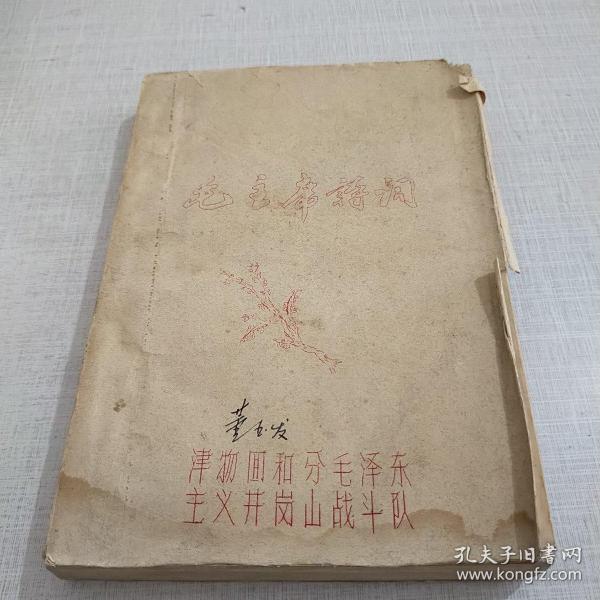 毛主席诗词
董玉发
津物回和分毛泽东
主义井岗山战斗队
孔夫子旧書网
www.kongfz.com